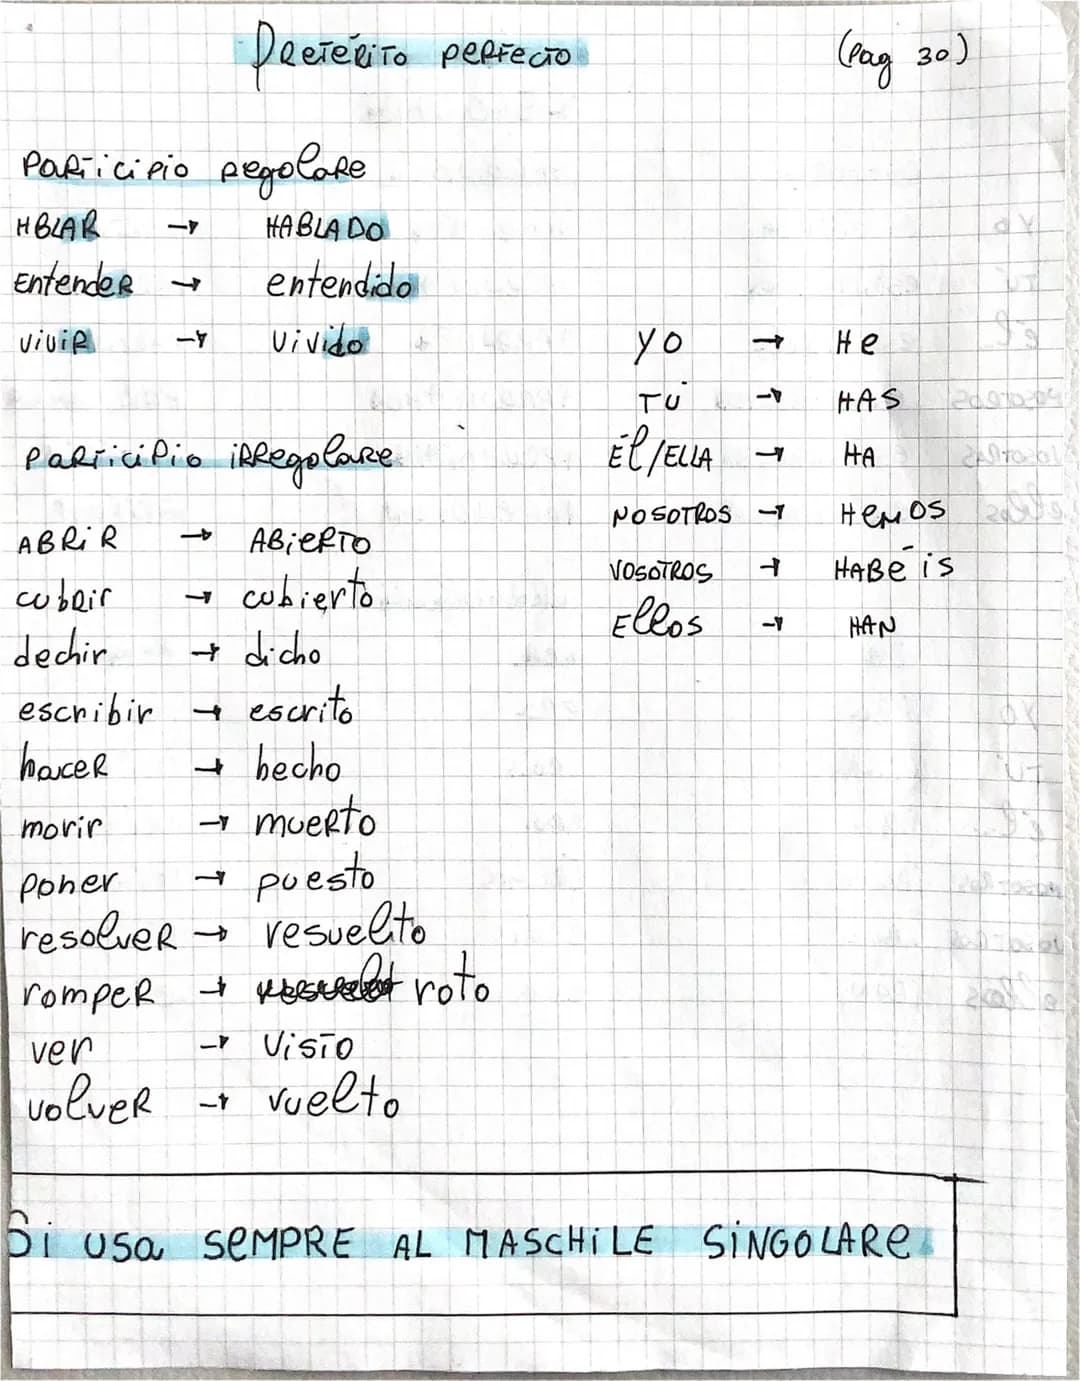 Preterito perfecto (Pag 30)
Participio regolare
HBLAR → HABLADO
Entender → entendido
vivir → vivido
YO → He
TÚ → HAS
Él/ELLA → HA
NOSOTROS → HEMOS
VOSOTROS → HABÉis
Ellos → HAN
Participio irregolare
ABRiR → ABiERTO
cubrir → cubierto
dechir → dicho
escribir → escrito
hacer → hecho
morir → muerto
poner → puesto
resolver → resuelto
romper → roto
ver → visto
volver → vuelto
Si usa SEMPRE AL MASCHiLE SiNGOLARE